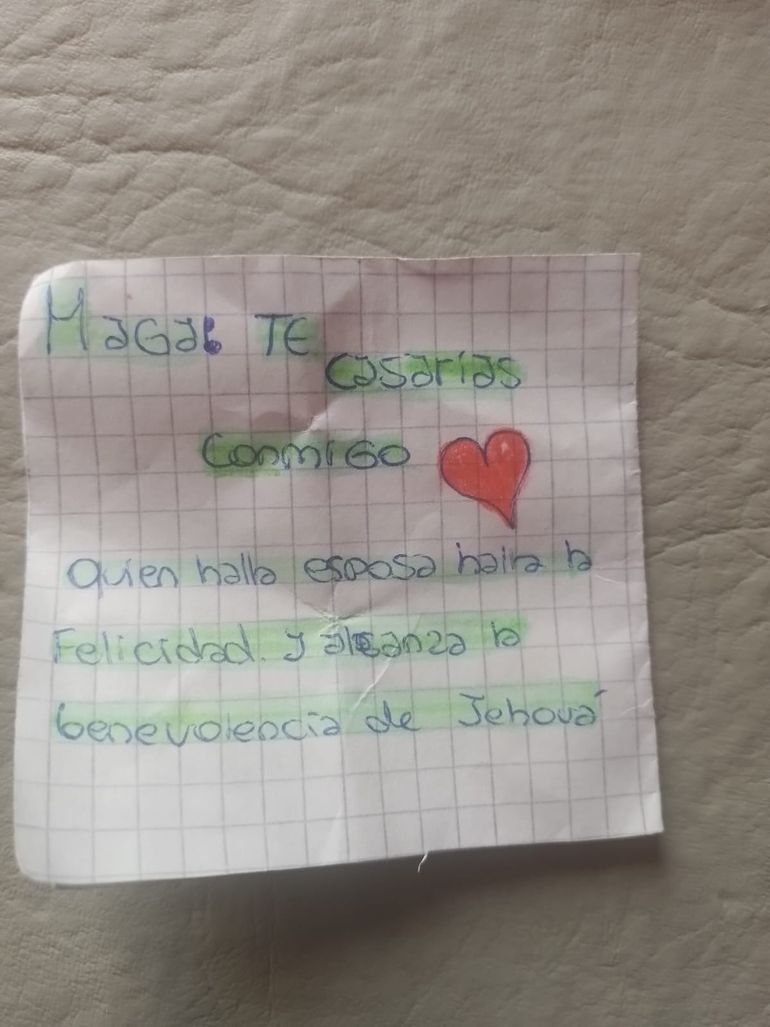 MaGa: TE
casarías
conmigo
Quien halla esposa halla la
Felicidad. y alcanza la
benevolencia de Jehová